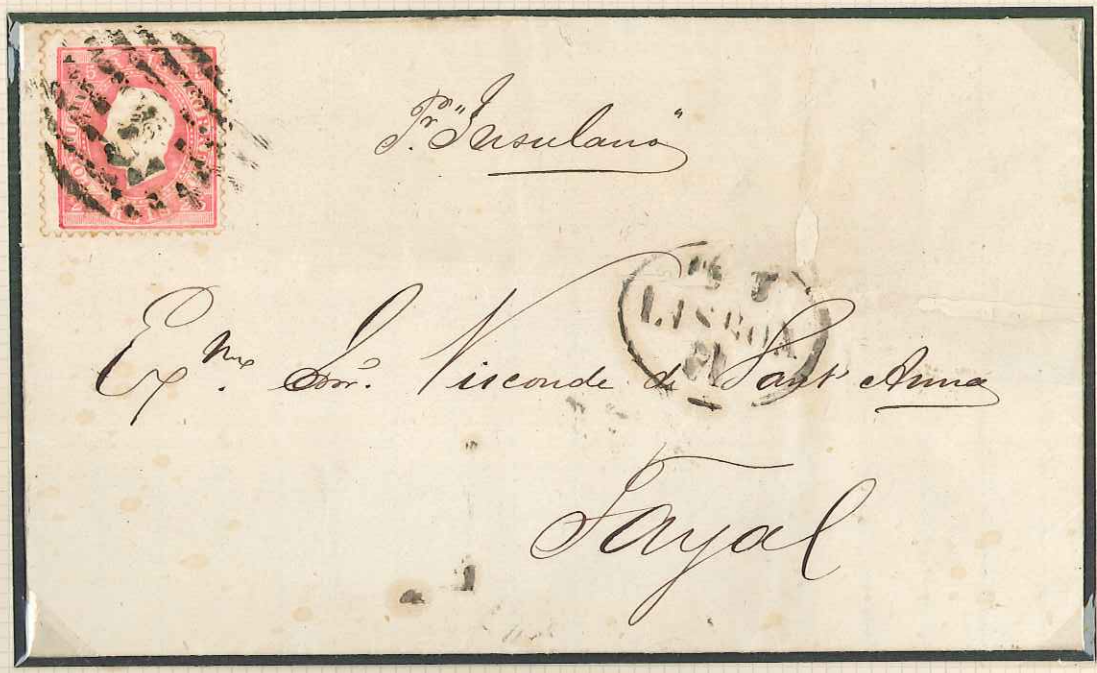 Pr. "Insulano"
LISBOA
Exmo. Snr. Visconde de Sant'Anna
Fayal